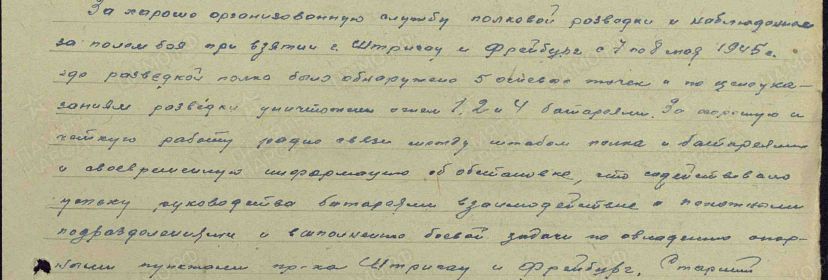 За хорошо организованную службу полковой разведки и наблюдения
за полем боя при взятии г. Штригау и Фрейбург с 7 по 8 мая 1945 г.
где разведкой полка было обнаружено 5 огневых точек и по целеука-
заниям разведки уничтожены огнем 1, 2 и 4 батареями. За хорошую и
четкую работу радио связи между штабом полка и батареями
и своевременную информацию об обстановке, что содействовало
успеху руководства батареями взаимодействие с пехотными
подразделениями и выполнению боевой задачи по овладению опор-
ными пунктами пр-ка Штригау и Фрейбург. Старший